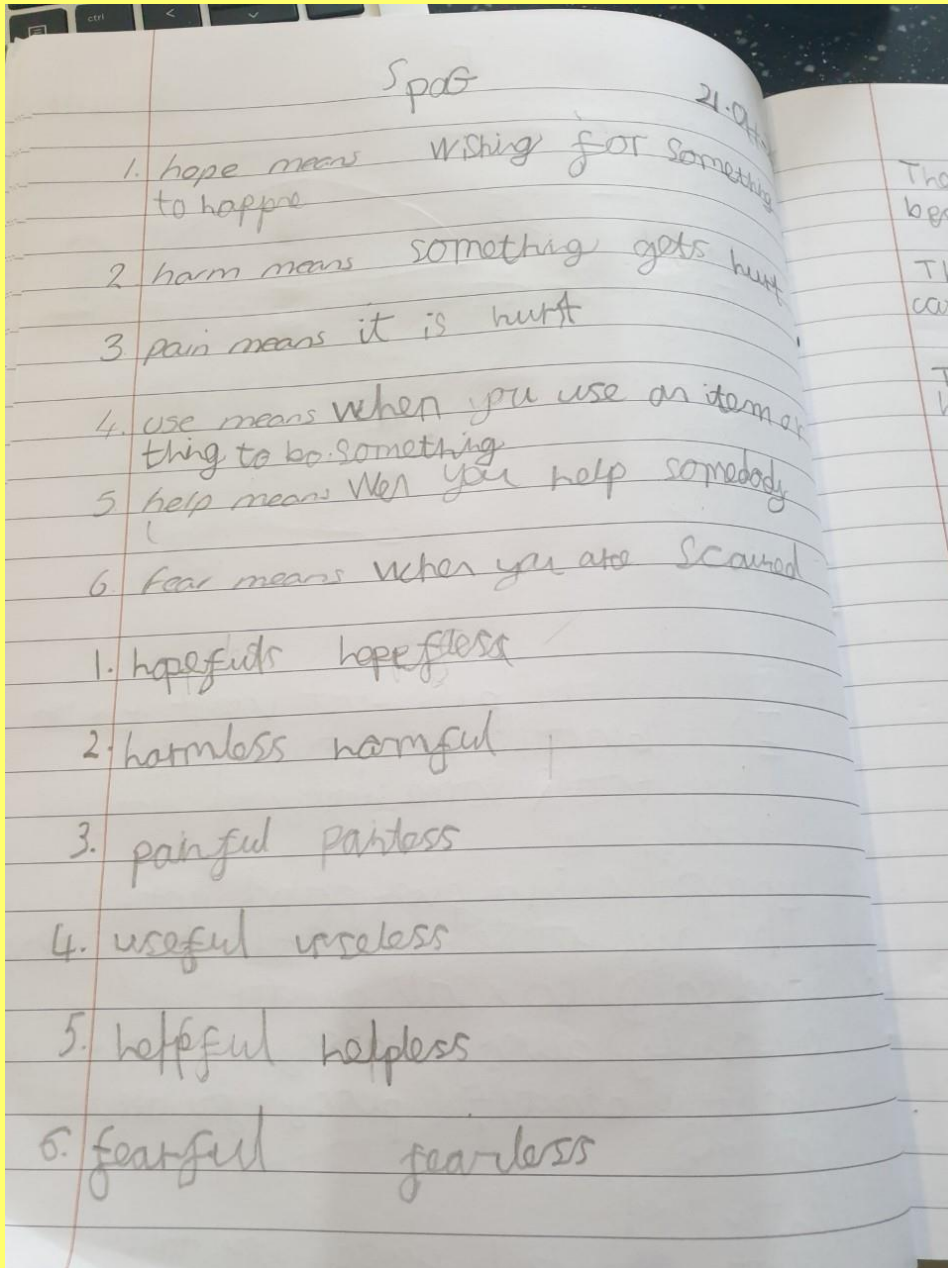 ctrl
SpaG
1. hope means wishing for something
to happne
2 harm means somethig gets hurt
3 pain means it is hurt
4. use means when you use an item or
thing to bo something
5 help means Wen you help somedody
6. fear means when you are scaured
1. hopefuls hopefless
2. harmless harmful
3. painful painless
4. useful useless
5. helpful helpless
6. fearful fearless